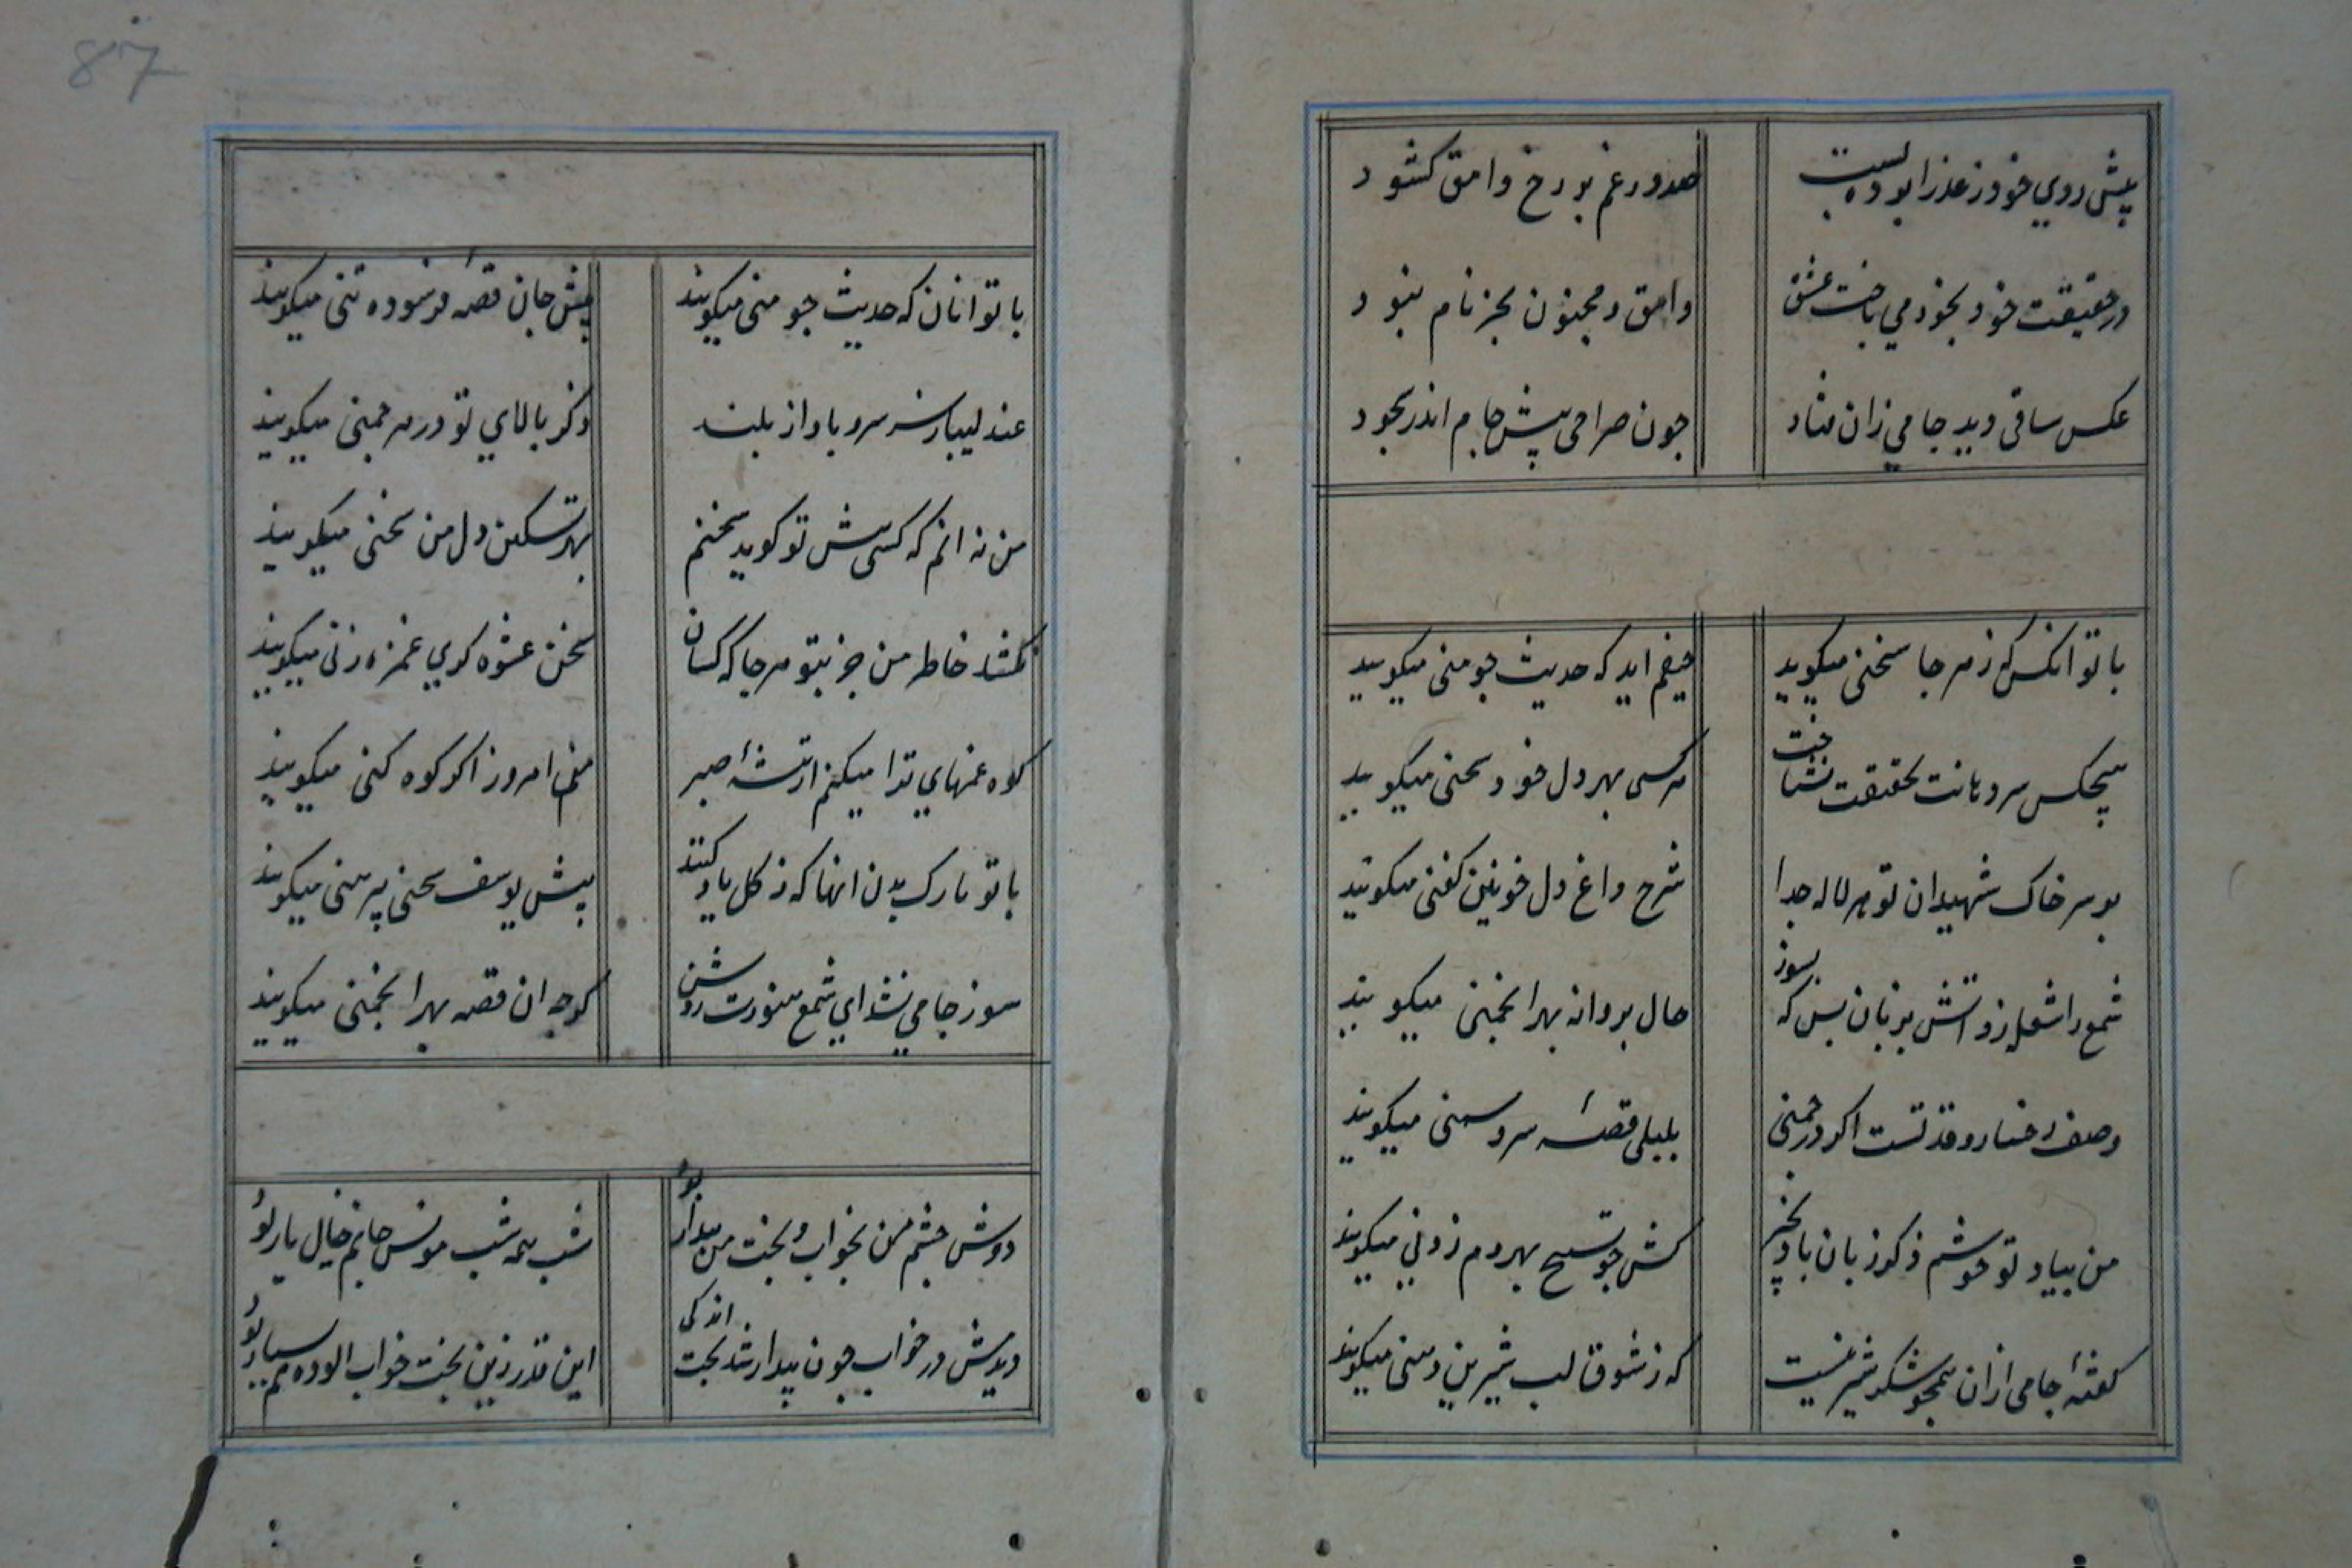 پیش روی خود ز عذرا بوده بست
صد در غم بر رخ وامق کشود
در حقیقت خود بخود می باخت عشق
وامق و مجنون بجز نام نبود
عکس ساقی دید جامی زان فتاد
چون صراحی پیش جام اندر سجود
با تو انکس که ز هر جا سخنی میکوید
حیفم اید که حدیث چو منی میکوید
هیچکس سر دهانت بحقیقت نشناخت
هر کسی بهر دل خود سخنی میکوید
بر سر خاک شهیدان تو هر لاله جدا
شرح داغ دل خونین کفنی میکوید
شمع را شعله زد اتش بزبان بس که بسوز
حال پروانه بهر انجمنی میکوید
وصف رخسار و قد تست اکر در چمنی
بلبلی قصهٔ سرو سمنی میکوید
من بیاد تو خوشم ذکر زبان باد بخیر
کش چو تسبیح بهر دم زدنی میکوید
کفتهٔ جامی ازان همچو شکر شیرینست
که ز شوق لب شیرین دهنی میکوید
87
با تو انان که حدیث چو منی میکویند
پیش جان قصهٔ فرسوده تنی میکویند
عندلیبان ز سر سرو باواز بلند
ذکر بالای تو در هر چمنی میکویند
من نه انم که کسی پیش تو کوید سخنم
بهر تسکین دل من سخنی میکویند
نکشد خاطر من جز بتو هر جا که کسان
سخن عشوه کری غمزه زنی میکویند
کوه غمهای ترا میکنم از تیشهٔ صبر
منم امروز اکر کوه کنی میکویند
با تو نازک بدن انها که ز کل یاد کنند
پیش یوسف سخن پیرهنی میکویند
سوز جامی نشد ای شمع هنوزت روشن
کرچه ان قصه بهر انجمنی میکویند
دوش چشم من بخواب و بخت من بیدار بود
شب همه شب مونس جانم خیال یار بود
دیدمش در خواب چون بیدار شد بخت اندکی
این قدر زین بخت خواب الوده هم بسیار بود